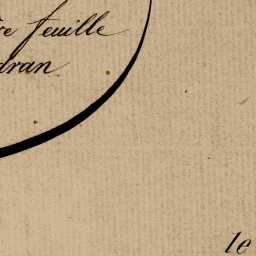 re feuille
dran
le